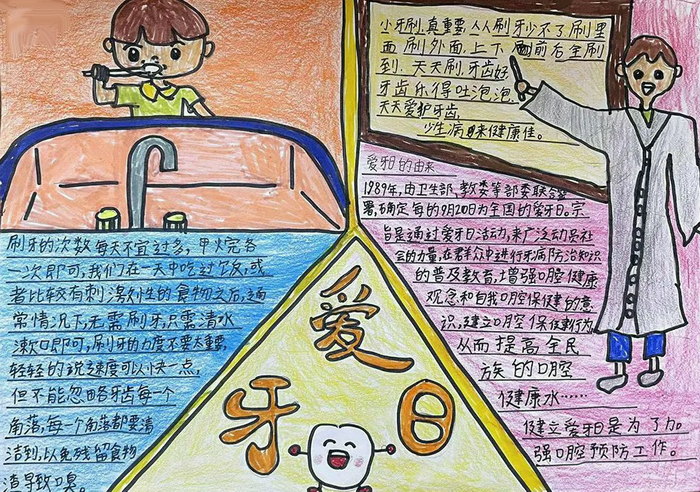 小牙刷,真重要,人人刷牙少不了刷里
面刷外面,上下刷前后全刷
到.天天刷,牙齿好,
牙齿乐得吐泡泡,
天天爱护牙齿,
少生病来健康佳。
爱牙日的由来
1989年,由卫生部,教委等部委联合签
署,确定每的9月20日为全国的爱牙日。宗
旨是通过爱牙日活动,来广泛动员社
会的力量,在群众中进行牙病防治知识
的普及教育,增强口腔健康
观念和自我口腔保健的意
识,建立口腔保保健行为,
从而提高全民
族的口腔
健康水……
健立爱牙日是为了加
强口腔预防工作。
刷牙的次数每天不宜过多,
一次即可,我们在一天中吃过饭,或
者比较有刺激性的食物之后,通
常情况下,无需刷牙,只需清水
漱口即可,刷牙的力度不要太重,
轻轻的,速度可以快一点,
但不能忽略牙齿每一个
角落,每一个角落都要清
洁到,以免残留食物
渣导致口臭。
爱
牙日